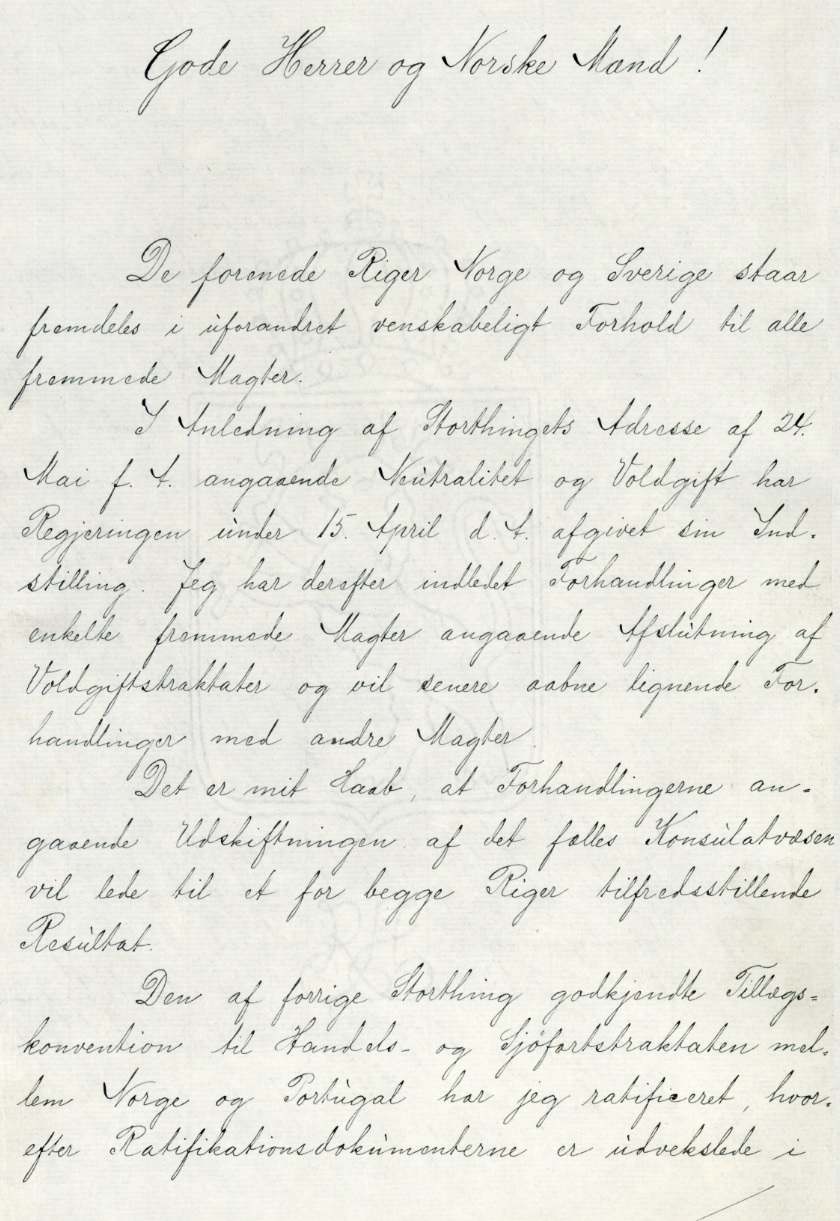 Gode Herrer og Norske Mænd!
De forenede Riger Norge og Sverige staar
fremdeles i uforandret venskabeligt Forhold til alle
fremmede Magter.
I Anledning af Storthingets Adresse af 24.
Mai f. A. angaaende Neutralitet og Voldgift har
Regjeringen under 15. April d. A. afgivet sin Ind-
stilling. Jeg har derefter indledet Forhandlinger med
enkelte fremmede Magter angaaende Afslutning af
Voldgiftstraktater og vil senere aabne lignende For-
handlinger med andre Magter.
Det er mit Haab, at Forhandlingerne an-
gaaende Udskiftningen af det fælles Konsulatvæsen
vil lede til et for begge Riger tilfredsstillende
Resultat.
Den af forrige Storthing godkjendte Tillægs=
konvention til Handels- og Sjøfartstraktaten mel-
lem Norge og Portugal har jeg ratificeret, hvor-
efter Ratifikationsdokumenterne er udvekslede i